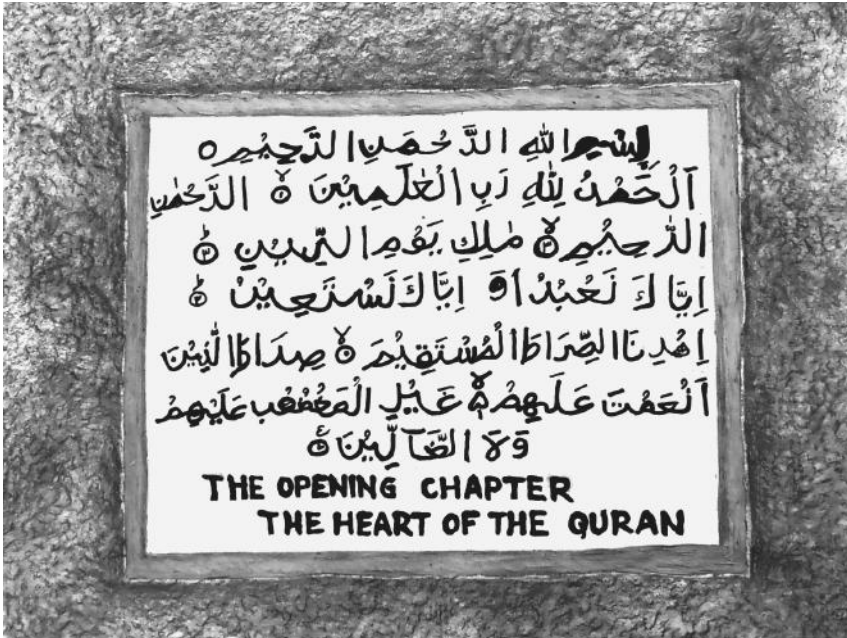 بِسْمِ اللهِ الدَّحْمَنِ الدَّحِيْمِ ○
اَلْحَمْدُ لِلّٰهِ رَبِ الْعٰلَمِيْنَ ۝ الدَّحْمٰنِ
الدَّحِيْمِ ۝ مٰلِكِ يَوْمِ الدِّيْنِ ۝
اِيَّاكَ نَعْبُدُ وَ اِيَّاكَ نَسْتَعِيْنُ ۝
اِهْدِنَا الصِّرَاطَ الْمُسْتَقِيْمَ ۝ صِدَاطَ الَّذِيْنَ
اَنْعَمْتَ عَلَيْهِمْ ۝ غَيْرِ عَلَيْهِمْ
وَلَا الضَّآلِّيْنَ ۝
THE OPENING CHAPTER
THE HEART OF THE QURAN